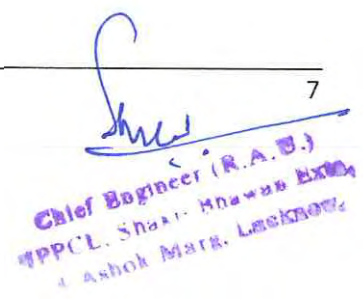 7
Chief Engineer (R.A.U.)
UPPCL, Shakti Bhawan Extn.
Ashok Marg, Lucknow.